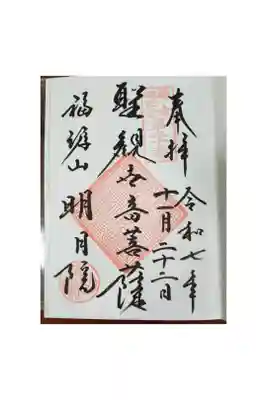 奉拝
令和七年
十一月二十二日
聖観世音菩薩
福源山
明月院